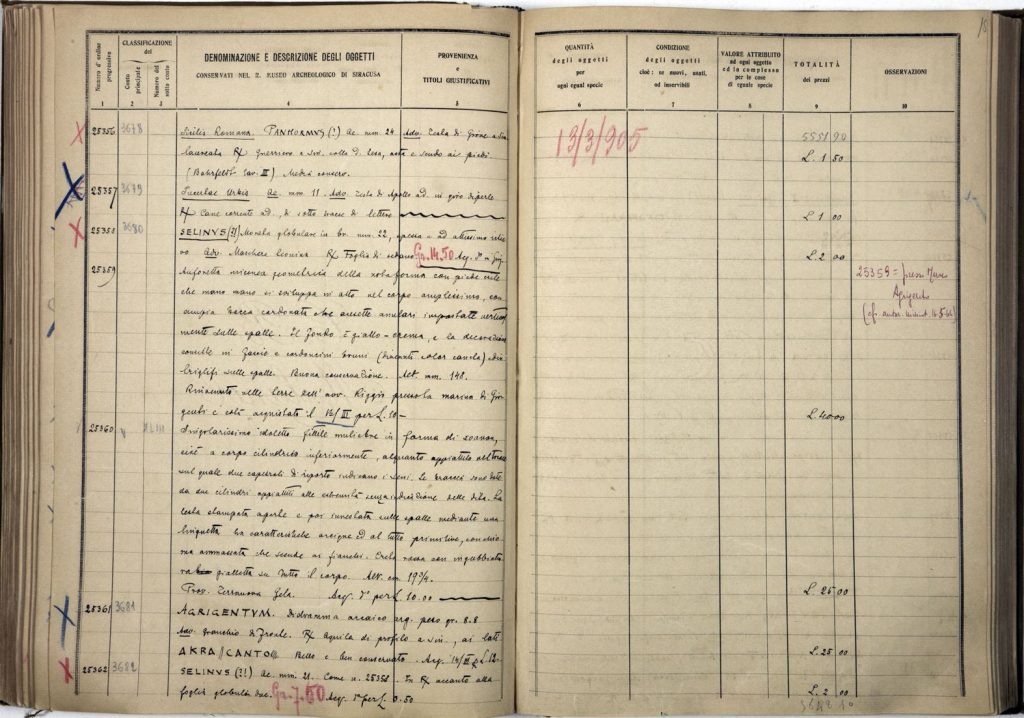 10
Numero d'ordine progressivo
CLASSIFICAZIONE
del
Conto principale
Numero del sotto conto
DENOMINAZIONE E DESCRIZIONE DEGLI OGGETTI
CONSERVATI NEL R. MUSEO ARCHEOLOGICO DI SIRACUSA
PROVENIENZA
e
TITOLI GIUSTIFICATIVI
QUANTITÀ
degli oggetti
per
ogni egual specie
CONDIZIONE
degli oggetti
cioè: se nuovi, usati,
od inservibili
VALORE ATTRIBUITO
ad ogni oggetto
od in complesso
per le cose
di eguale specie
TOTALITÀ
dei prezzi
OSSERVAZIONI
1 2 3 4 5 6 7 8 9 10
25356 3678 Sicilia Romana. PANHORMVS (?) Ae. mm. 24 Adv. Testa di Giove a sin.
laureata Rx Guerriero a sin. colla d. tesa, asta e scudo ai piedi.
(Bahrfeldt tav. II) Medià conserv. L. 1 50
13/3/905
5551 90
25357 3679 Ae. mm. 11. Adv. Testa di Apollo ad. in giro di perle
Rx Cane corrente ad., di sotto tracce di lettere L. 1 00
25358 3680 SELINVS (?!) Moneta globulare in br. mm. 22, spessa e ad altissimo rilie
vo Adv. Maschera leonina Rx Foglia di sedano Gr. 14.50 Acq. L. 2 00
25359 Anforetta micenea geometrica della nota forma con piede
che mano mano si sviluppa in alto nel corpo amplissimo, con
ampia bocca cordonata due ansette anulari impostate vertical
mente sulle spalle. Il fondo è giallo-crema, e la decorazione
consiste in fascie e cordoncini bruni
triglifi sulle spalle. Buona conservazione. Alt. mm. 148.
Rinvenuto nelle terre dell'avv. Riggio presso la marina di Gir
genti e colà acquistato il 12/III per L. 40 – L. 40.00
25359 = presso Museo
Agrigento
25360 Singolarissimo idoletto fittile muliebre in forma di xoanon,
cioè a corpo cilindrico inferiormente, alquanto appiattito nel torace
sul quale due capezzoli di riporto indicano i seni. Le braccia sono date
da due cilindri appiattiti alle estremità senza indicazione delle dita. La
testa stampata a parte e poi innestata sulle spalle mediante una
linguetta ha caratteristiche arcigne ed al tutto primitive, con chio
ma ammassata che scende ai fianchi. Creta rossa con ingubbiatu
ra gialletta su tutto il corpo. Alt. cm. 19 3/4.
Prov. Terranova Gela. Acq. L. 25,00
25361 3681 AGRIGENTVM. Didramma arcaico arg. peso gr. 8.8
Adv. Granchio di fronte. Rx Aquila di profilo a sin., ai lati
AKRA // CANTO Bello e ben conservato. Acq. L. 25 00
25362 3682 SELINVS (?!) Ae. mm. 21. Come n. 25358. In Rx accanto alla
foglia globuli due. Gr. 7.50 Acq. L. 2 00